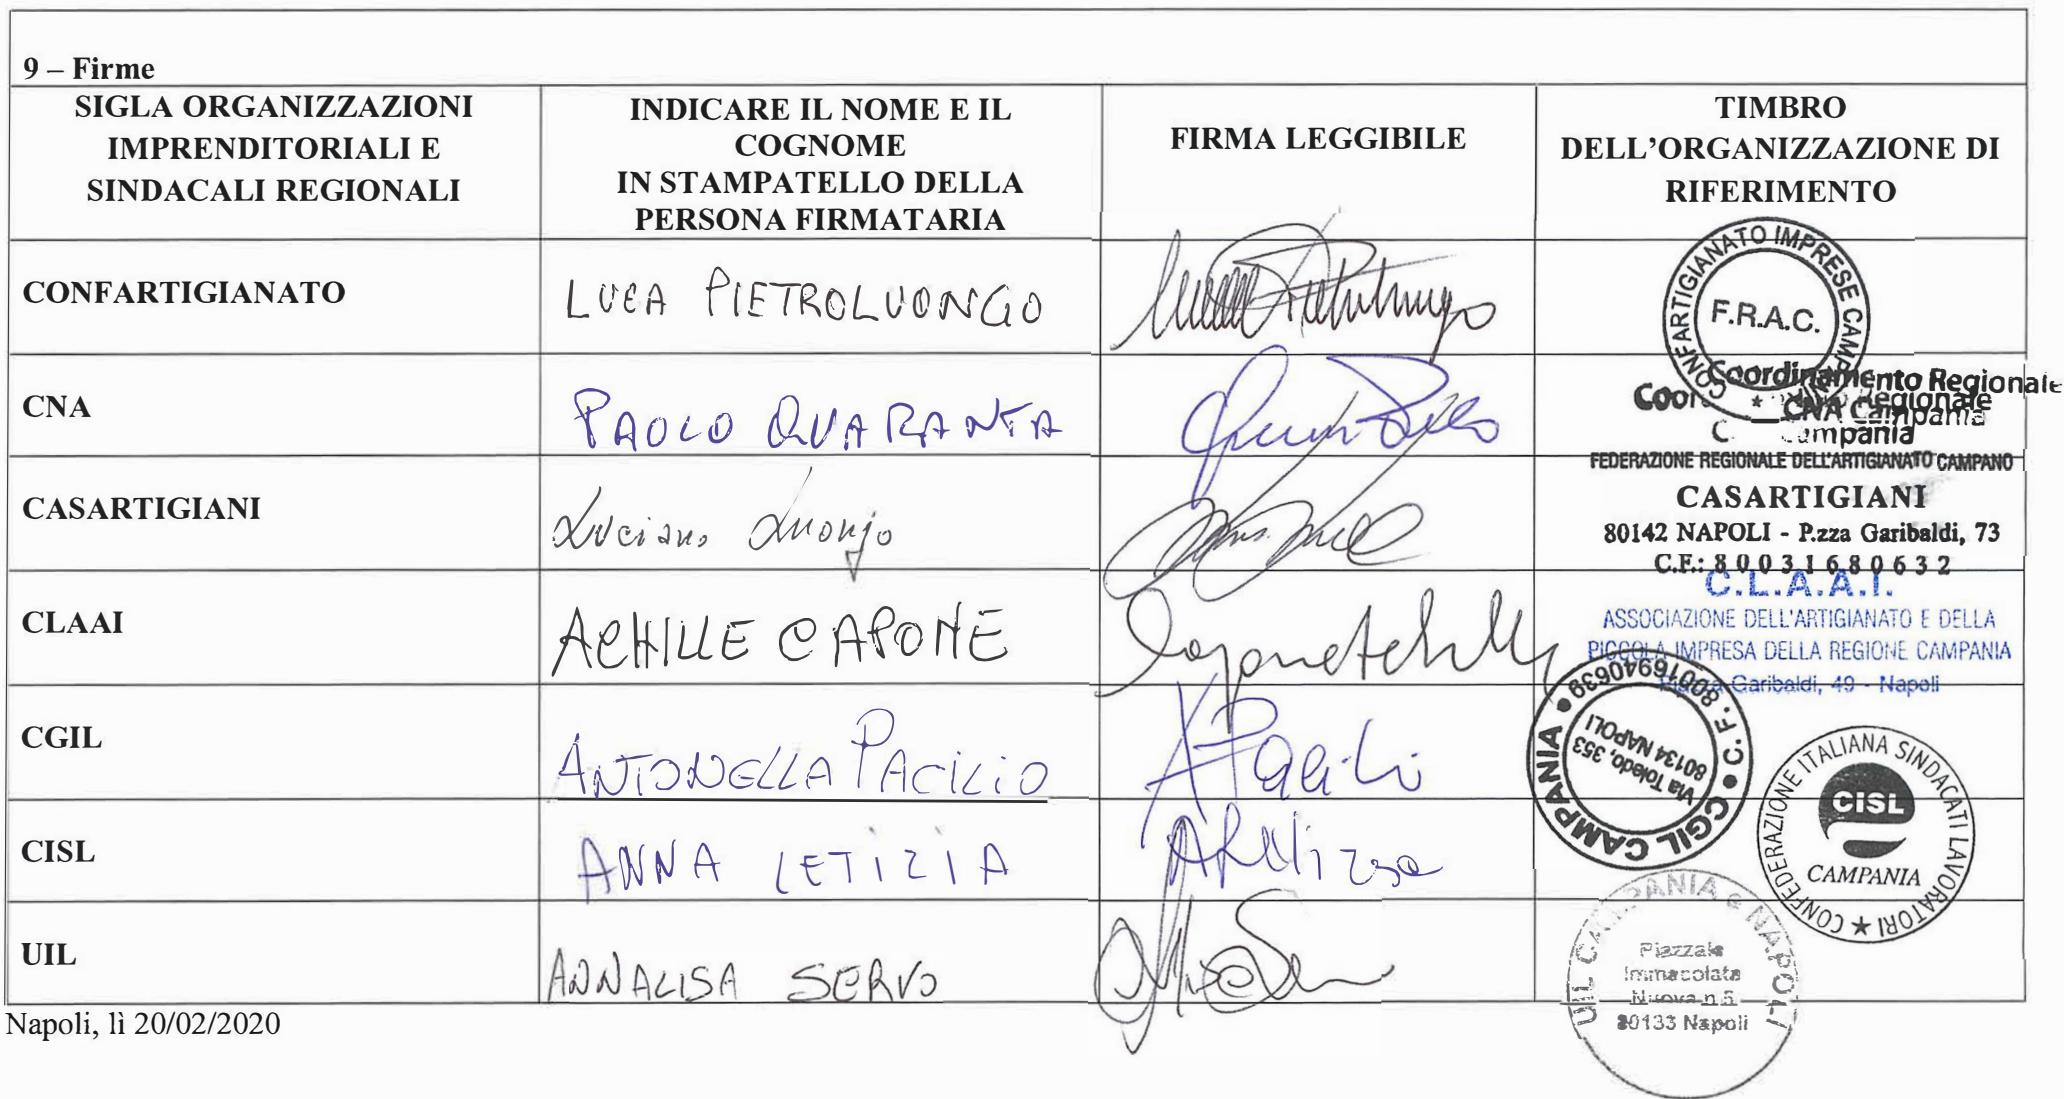 9 – Firme
SIGLA ORGANIZZAZIONI
IMPRENDITORIALI E
SINDACALI REGIONALI
INDICARE IL NOME E IL
COGNOME
IN STAMPATELLO DELLA
PERSONA FIRMATARIA
FIRMA LEGGIBILE
TIMBRO
DELL'ORGANIZZAZIONE DI
RIFERIMENTO
CONFARTIGIANATO
LUCA PIETROLUONGO
CONFARTIGIANATO IMPRESE
F.R.A.C.
CNA
PAOLO QUARANTA
Coordinamento Regionale
CNA Campania
Regionale
Campania
CASARTIGIANI
Luciano Luongo
FEDERAZIONE REGIONALE DELL'ARTIGIANATO CAMPANO
CASARTIGIANI
80142 NAPOLI - P.zza Garibaldi, 73
C.F.: 80031680632
CLAAI
ACHILLE CAPONE
Capone Achille
C.L.A.A.I.
ASSOCIAZIONE DELL'ARTIGIANATO E DELLA
PICCOLA IMPRESA DELLA REGIONE CAMPANIA
Piazza Garibaldi, 49 - Napoli
CGIL
ANTONELLA PACILIO
CGIL CAMPANIA • C. F. 80016940639
Via Toledo, 353
80134 NAPOLI
CISL
ANNA LETIZIA
CONFEDERAZIONE ITALIANA SINDACATI LAVORATORI
CISL
CAMPANIA
UIL
ANNALISA SERVO
UIL CAMPANIA e NAPOLI
Piazzale
Immacolata
Nuova n.5
80133 Napoli
Napoli, lì 20/02/2020